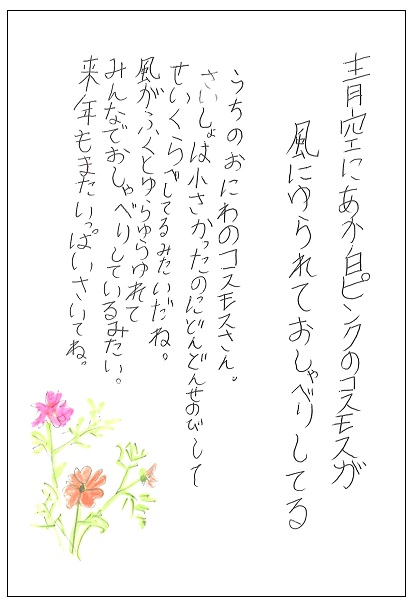 青空にあか白ピンクのコスモスが
風にゆられておしゃべりしてる
うちのおにわのコスモスさん。
さいしょは小さかったのにどんどんせのびして
せいくらべしてるみたいだね。
風がふくとゆらゆらゆれて
みんなでおしゃべりしているみたい。
来年もまたいっぱいさいてね。